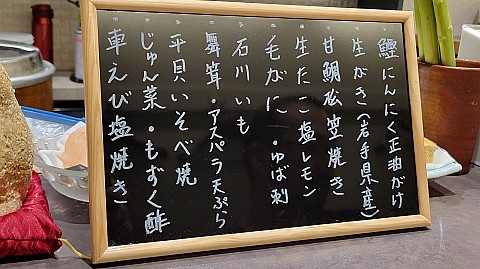 鰹にんにく正油がけ
・生がき(岩手県産)
・甘鯛松笠焼き
・生たこ塩レモン
・毛がに・ゆば刺
・石川いも
・舞茸・アスパラ天ぷら
・平貝いそべ焼
・じゅん菜・もずく酢
・車えび塩焼き